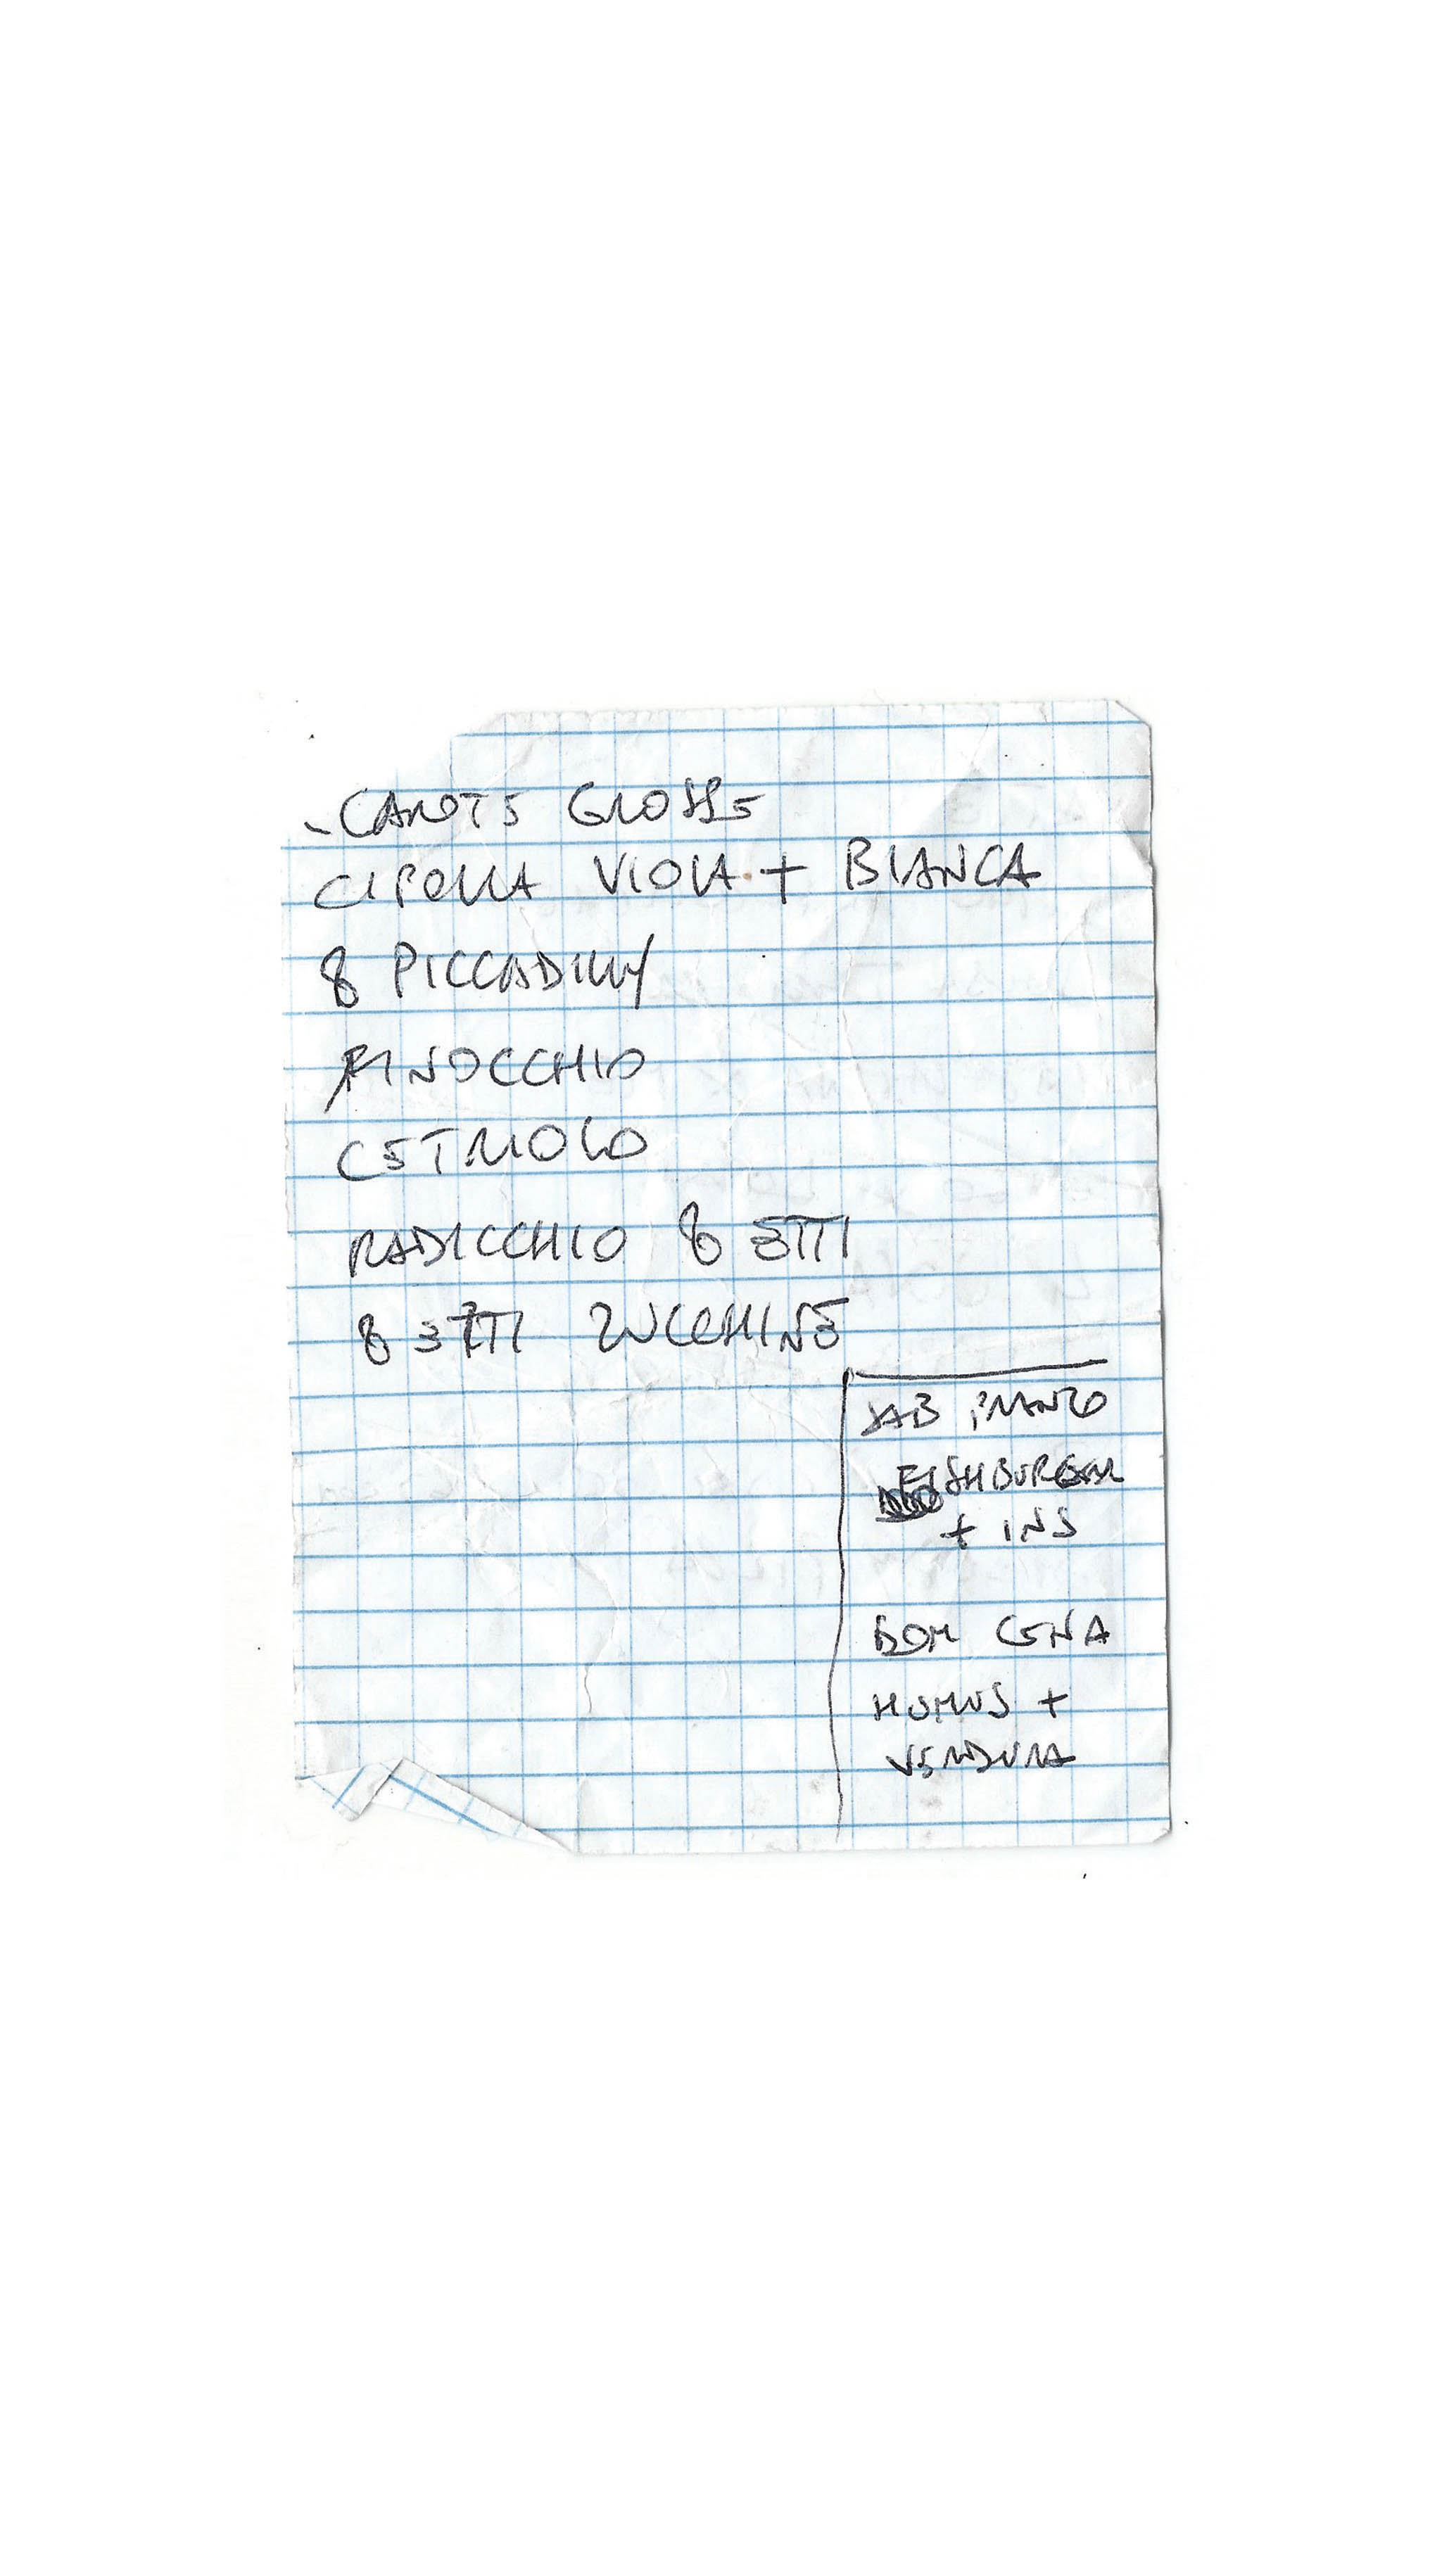 - CAROTE GROSSE
CIPOLLA VIOLA + BIANCA
8 PICCADILLY
FINOCCHIO
CETRIOLO
RADICCHIO 8 ETTI
8 ETTI ZUCCHINE
SAB PRANZO
FISHBURGER
+ INS
DOM CENA
HUMUS +
VERDURA